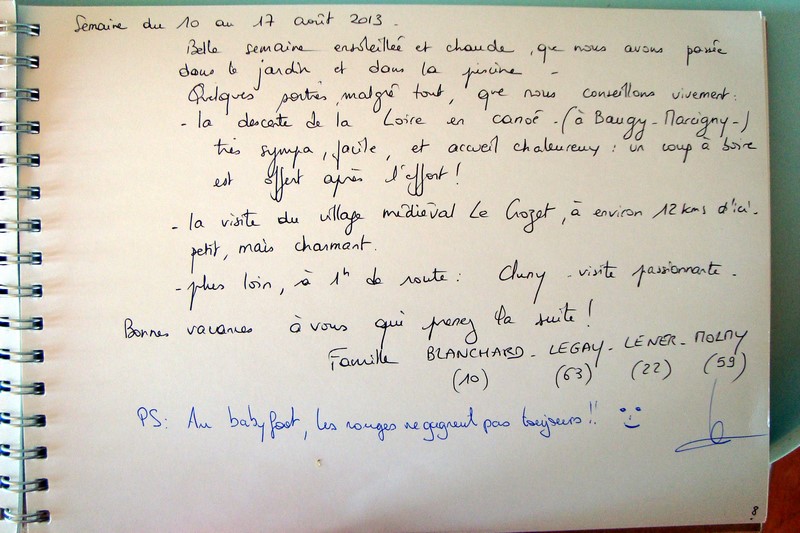 Semaine du 10 au 17 août 2013.
Belle semaine ensoleillée et chaude, que nous avons passée
dans le jardin et dans la piscine -
Quelques sorties, malgré tout, que nous conseillons vivement:
- la descente de la Loire en canoé - (à Baugy - Marcigny -)
très sympa, facile, et accueil chaleureux : un coup à boire
est offert après l'effort !
- la visite du village médiéval Le Crozet, à environ 12 kms d'ici -
petit, mais charmant.
- plus loin, à 1h de route : Cluny - visite passionnante -
Bonnes vacances à vous qui prenez la suite !
Famille BLANCHARD - LEGAY - LENER -
(10) (63) (22) (59)
PS: Au babyfoot, les rouges ne gagnent pas toujours !!
8.